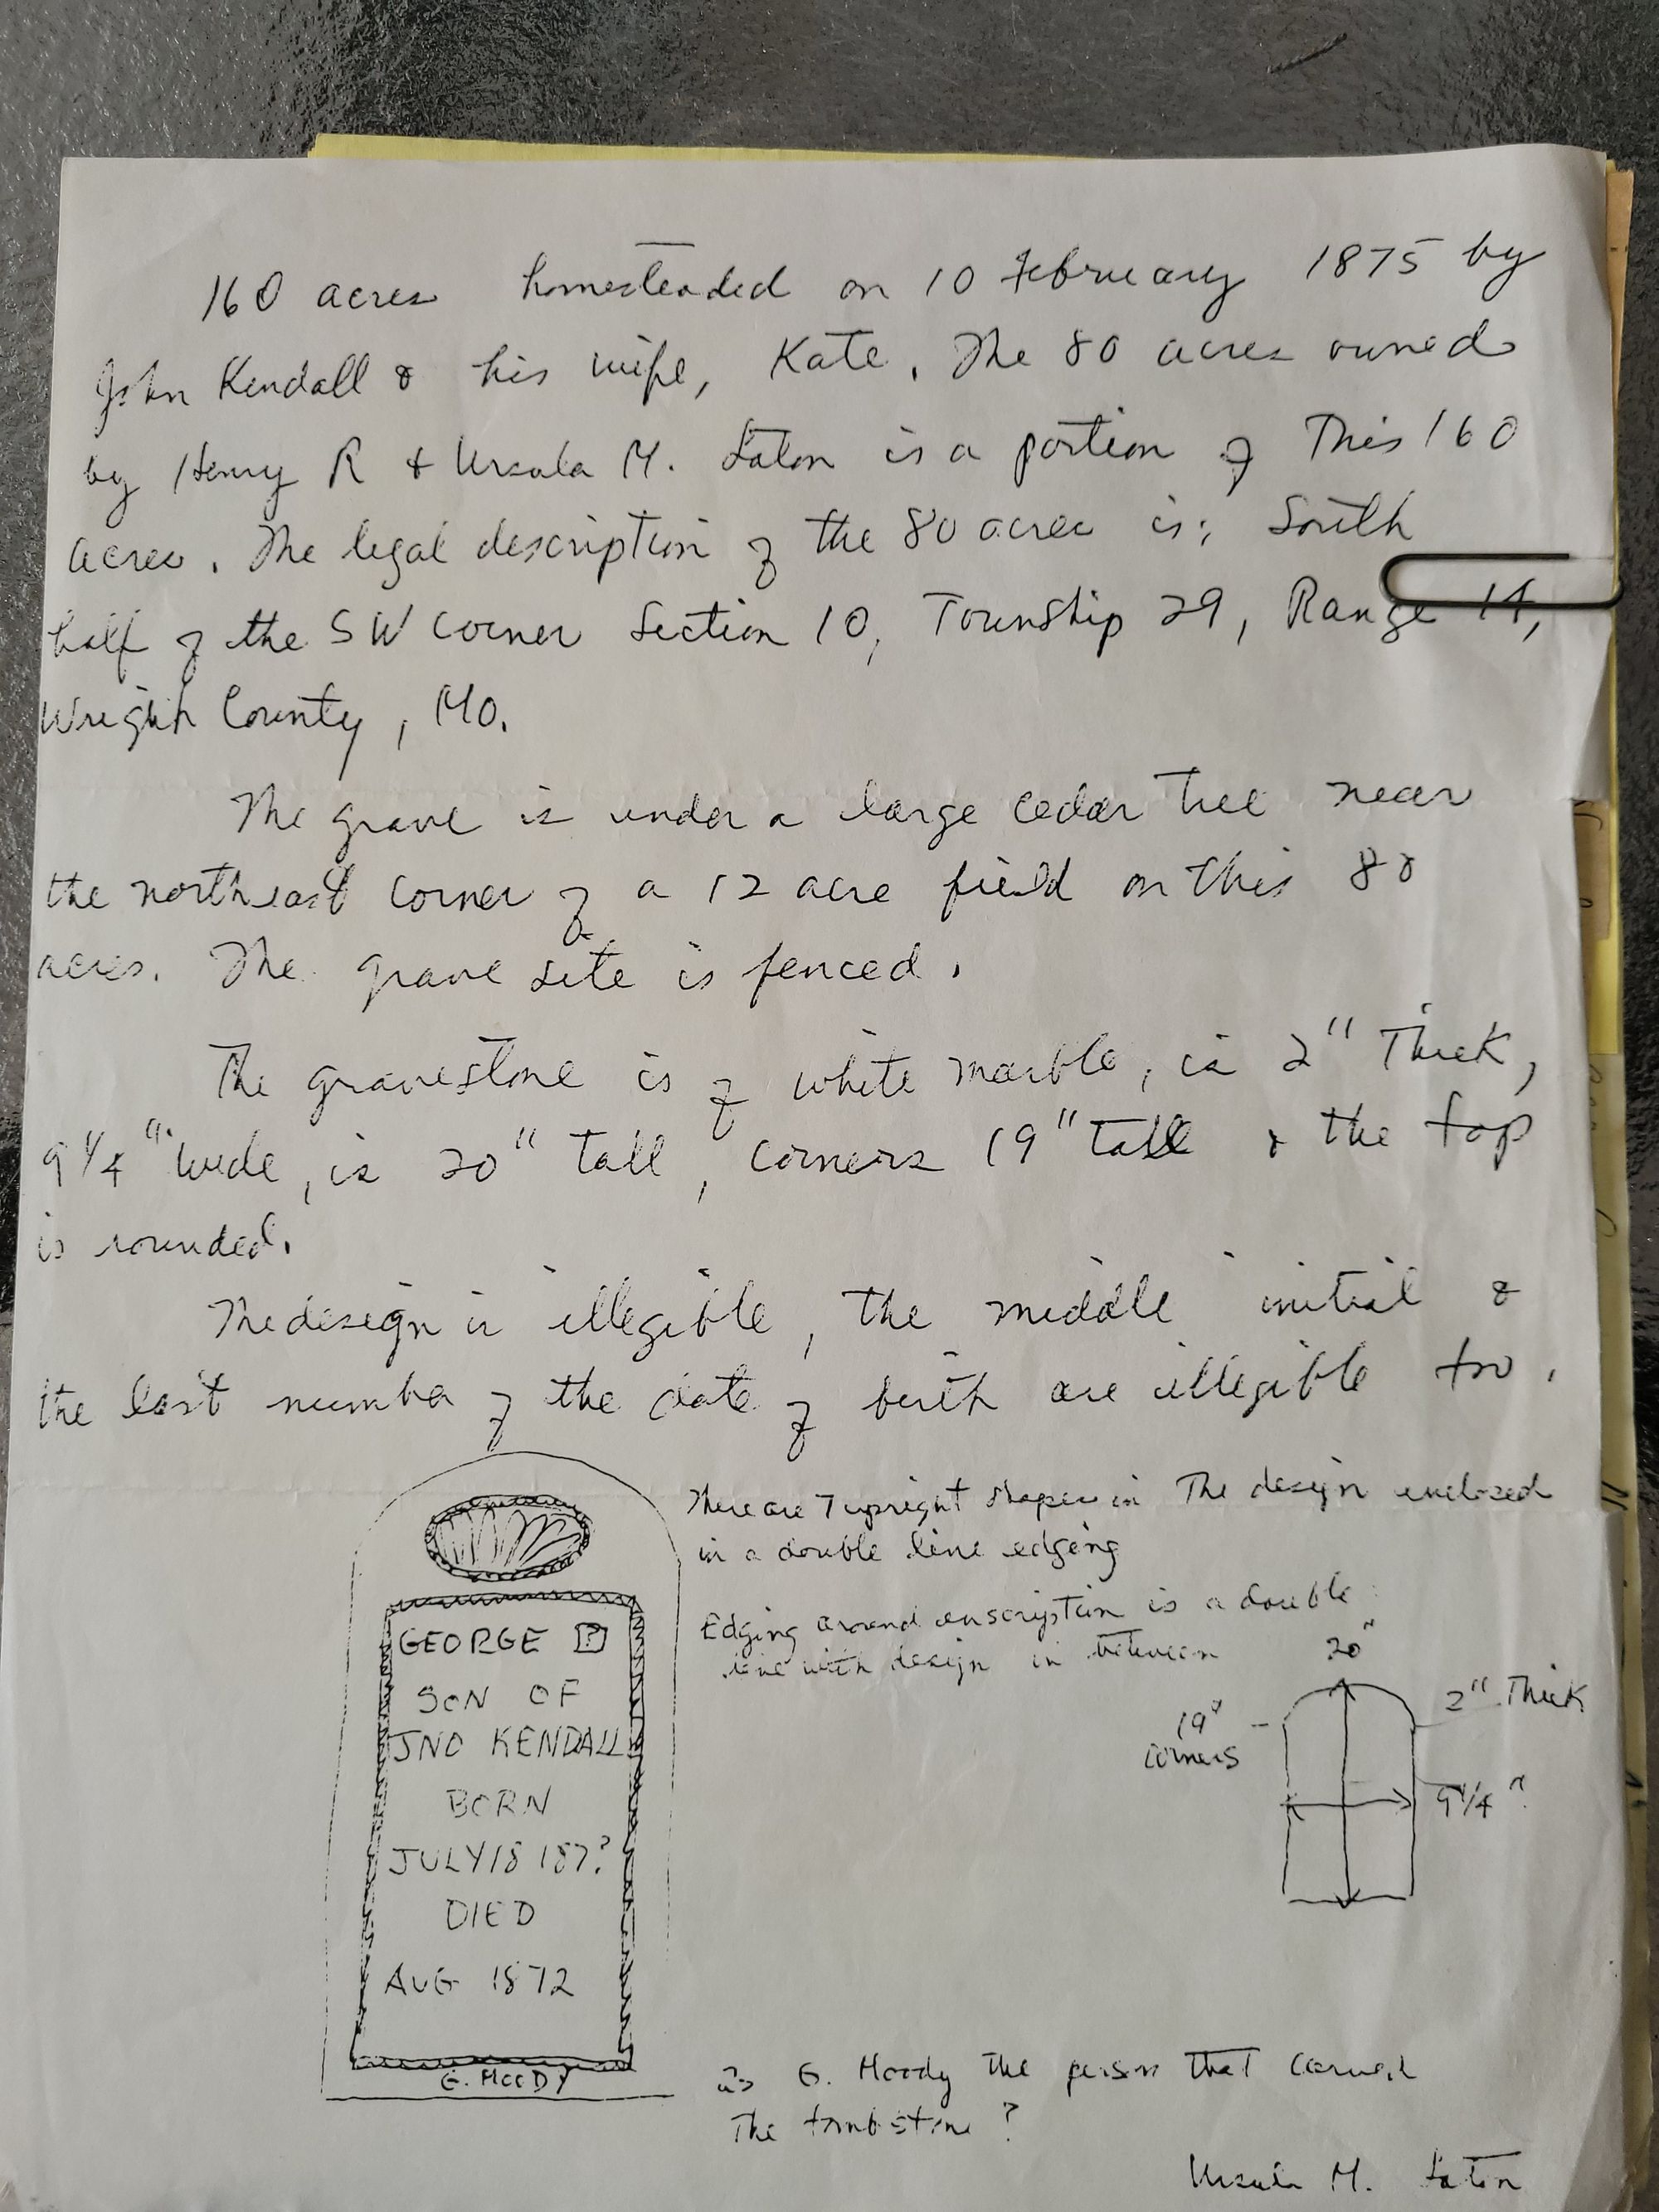 160 acres homesteaded on 10 February 1875 by
John Kendall & his wife, Kate. The 80 acres owned
by Henry R & Ursula M. Eaton is a portion of This 160
acres. The legal description of the 80 acres is; South
half of the SW corner Section 10, Township 29, Range 14,
Wright County, MO.
The grave is under a large cedar tree near
the northeast corner of a 12 acre field on this 80
acres. The grave site is fenced.
The gravestone is of white marble, is 2" Thick,
9 1/4" wide, is 20" tall, corners 19" tall & the top
is rounded.
The design is illegible, the middle initial &
the last number of the date of birth are illegible too.
There are 7 upright shapes in The design enclosed
in a double line edging
Edging around enscription is a double
line with design in between
GEORGE ?
SON OF
JNO KENDALL
BORN
JULY 18 187?
DIED
AUG 1872
G. MOODY
20"
2" Thick
19"
corners
9 1/4"
Is G. Moody the person that carved
The tombstone?
Ursula M. Eaton